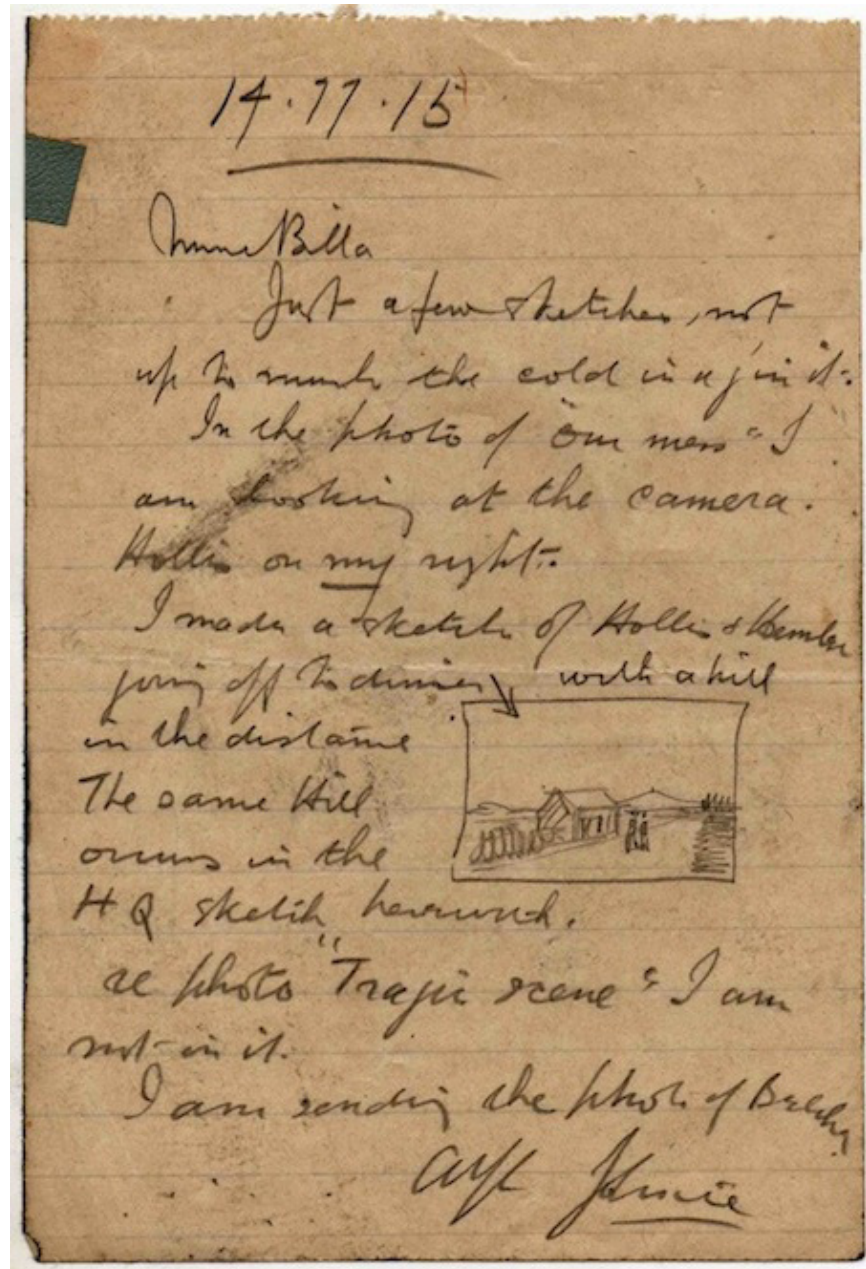 14.11.15
Mune Billa
Just a few sketches, not
up to much the cold in a j in it.
In the photo of "our mess" I
am looking at the camera.
Hollis on my right.
I made a sketch of Hollis &
going off to dinner with a hill
in the distance
The same Hill
occurs in the
H Q sketch herewith.
re photo "Tragic scene" I am
not in it.
I am sending the photo of